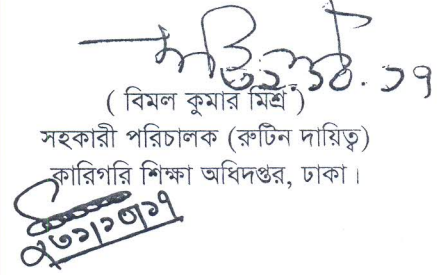 ( বিমল কুমার মিশ্র )
সহকারী পরিচালক (রুটিন দায়িত্ব)
কারিগরি শিক্ষা অধিদপ্তর, ঢাকা।